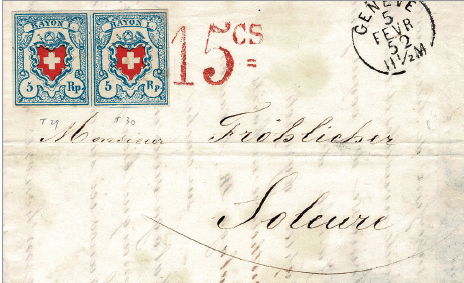 RAYON I RAYON I
5 Rp. 5 Rp.
15 cs
=
GENÈVE
5
FEVR
52
11½M
T 29 T 30
Monsieur Fröhlicher
Soleure